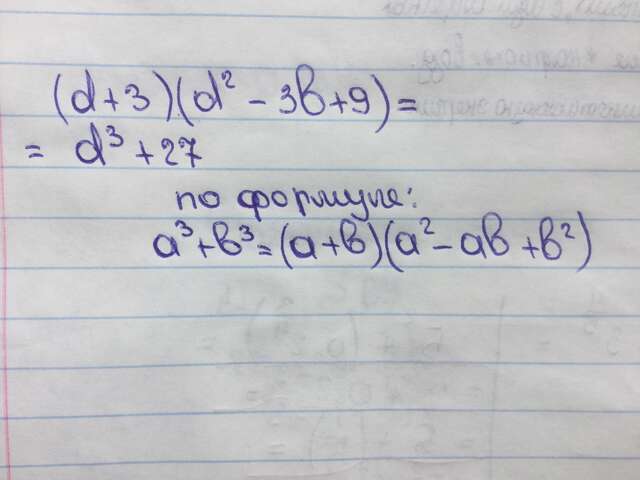 (d+3)(d² - 3в+9)=
= d³ + 27
по формуле:
а³+в³=(а+в)(а²-ав+в²)